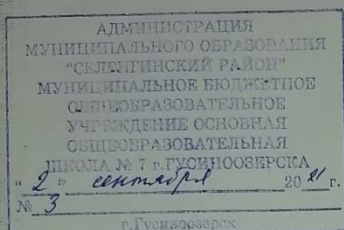 АДМИНИСТРАЦИЯ
МУНИЦИПАЛЬНОГО ОБРАЗОВАНИЯ
"СЕЛЕНГИНСКИЙ РАЙОН"
МУНИЦИПАЛЬНОЕ БЮДЖЕТНОЕ
ОБЩЕОБРАЗОВАТЕЛЬНОЕ
УЧРЕЖДЕНИЕ ОСНОВНАЯ
ОБЩЕОБРАЗОВАТЕЛЬНАЯ
ШКОЛА № 7 г.ГУСИНООЗЕРСКА
"2" сентября 2021 г.
№ 3
г.Гусиноозерск